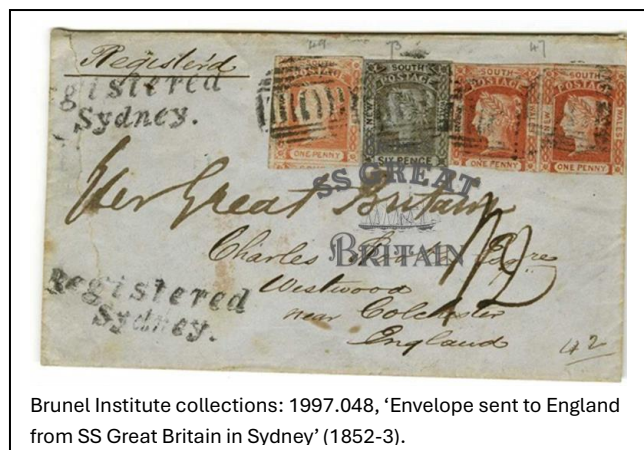 49 73 47
Registerd
gistered
Sydney.
SOUTH
POSTAGE
ONE PENNY
SOUTH
POSTAGE
NEW
WALES
SIX PENCE
SOUTH
POSTAGE
ONE PENNY
SOUTH
POSTAGE
WALES
ONE PENNY
Per Great Britain
SS GREAT
BRITAIN
Charles Esqre
Westwood
near Colchester
England
Registered
Sydney.
42
Brunel Institute collections: 1997.048, ‘Envelope sent to England
from SS Great Britain in Sydney’ (1852-3).